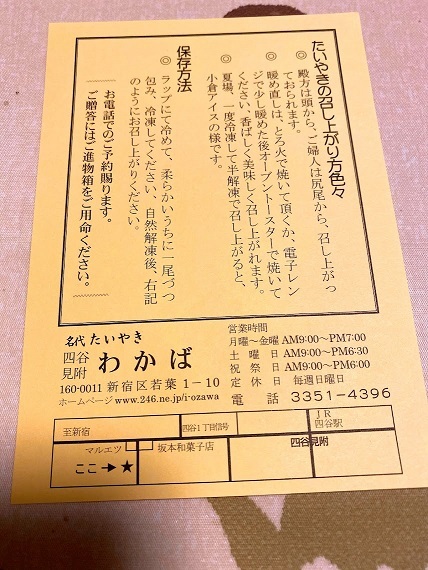 たいやきの召し上がり方色々
◎ 殿方は頭から、ご婦人は尻尾から、召し上がっ
ておられます。
◎ 暖め直しは、とろ火で焼いて頂くか、電子レン
ジで少し暖めた後オーブントースターで焼いて
ください、香ばしく美味しく召し上がれます。
◎ 夏場、一度冷凍して半解凍で召し上がると、
小倉アイスの様です。
保存方法
◎ ラップにて冷めて、柔らかいうちに一尾づつ
包み、冷凍してください、自然解凍後、右記
のようにお召し上がりください。
お電話でのご予約賜ります。
ご贈答にはご進物箱をご用命ください。
名代 たいやき
四谷見附 わかば
160-0011 新宿区若葉1-10
ホームページ www.246.ne.jp/i-ozawa
営業時間
月曜〜金曜 AM9:00〜PM7:00
土曜日 AM9:00〜PM6:30
祝祭日 AM9:00〜PM6:00
定休日 毎週日曜日
電話 3351-4396
至新宿
四谷1丁目信号
JR
四谷駅
マルエツ
坂本和菓子店
四谷見附
ここ→★